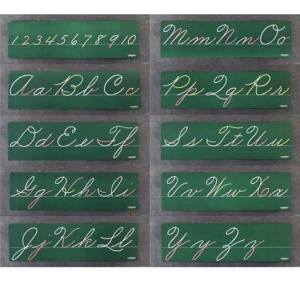 1 2 3 4 5 6 7 8 9 10
Aa Bb Cc
Dd Ee Ff
Gg Hh Ii
Jj Kk Ll
Mm Nn Oo
Pp Qq Rr
Ss Tt Uu
Vv Ww Xx
Yy Zz